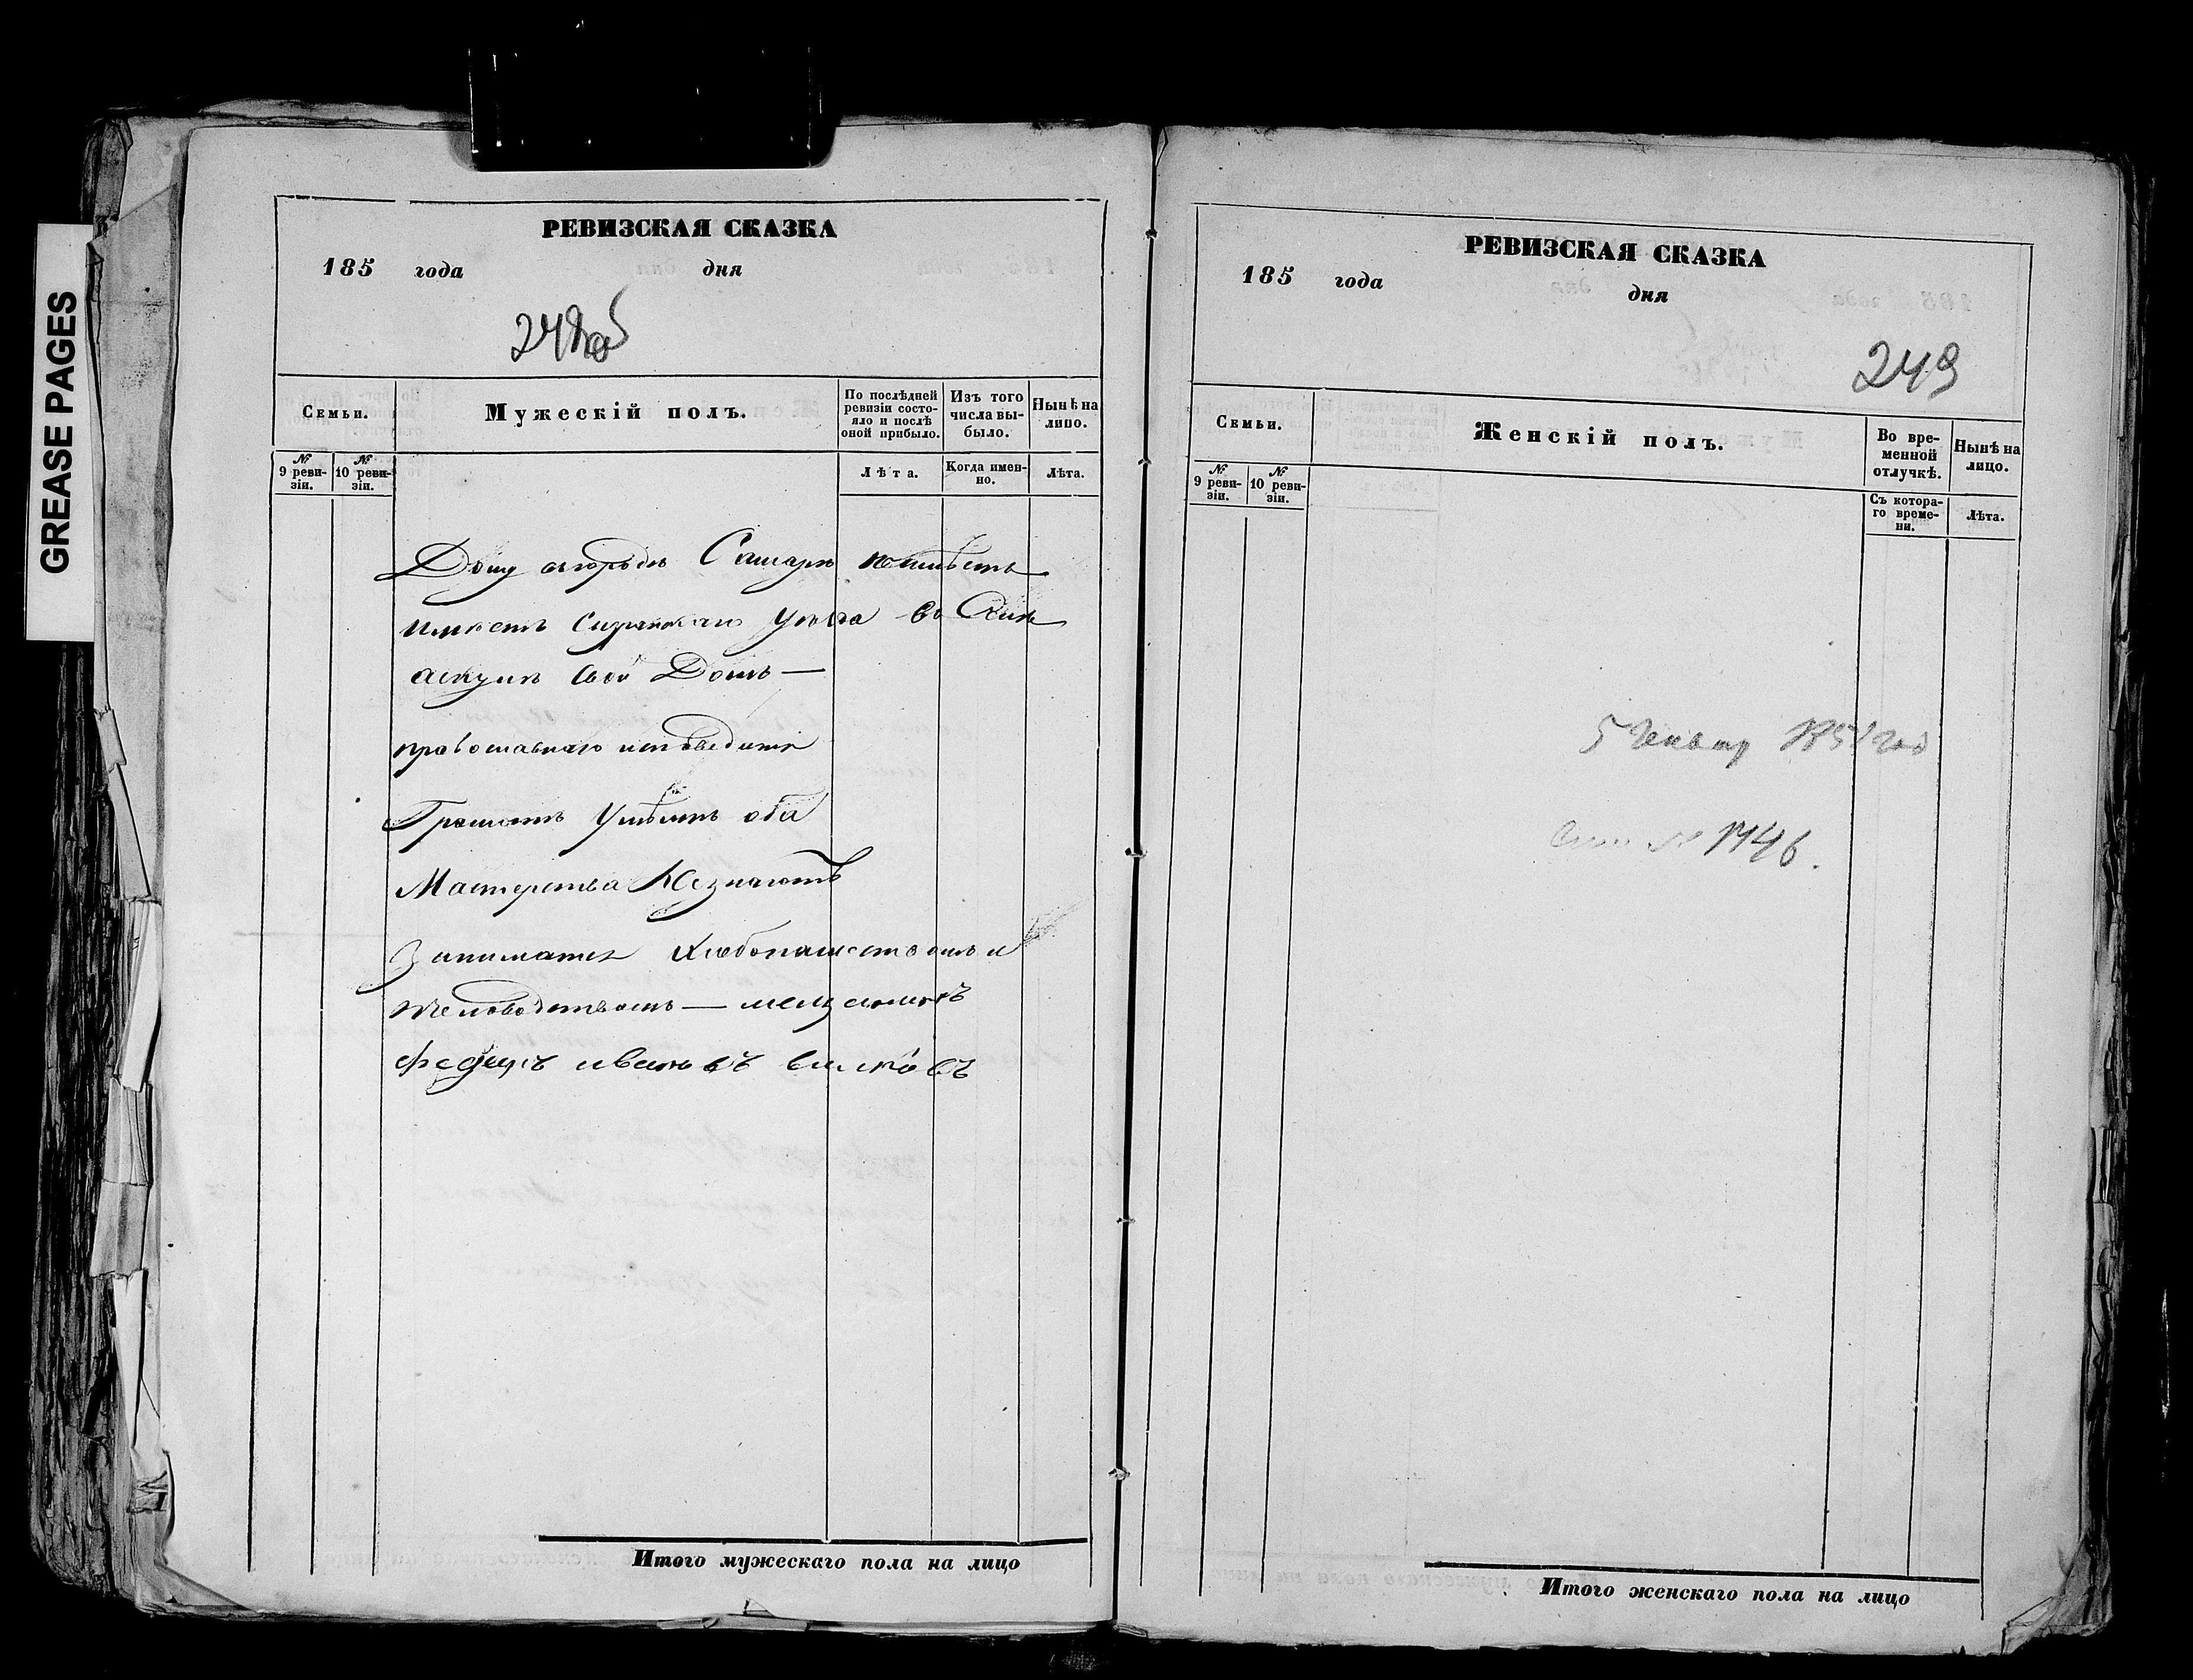 GREASE PAGES
РЕВИЗСКАЯ СКАЗКА
185 года дня
248об
Семьи.
Мужескій полъ.
По послѣдней ревизіи состояло и послѣ оной прибыло.
Изъ того числа выбыло.
Нынѣ на лицо.
№ 9 ревизіи.
№ 10 ревизіи.
Лѣта.
Когда именно.
Лѣта.
Дому въ городѣ Самарѣ неимѣетъ
имѣетъ уѣзда въ
свой Домъ —
православнаго исповѣдания
Грамоте Умѣютъ оба
Мастерства Незнаютъ
Занимается Хлебопашествомъ и
челободствомъ —
федоръ ивановъ
Итого мужескаго пола на лицо
РЕВИЗСКАЯ СКАЗКА
185 года
дня
249
Семьи.
Женскій полъ.
Во временной отлучкѣ.
Нынѣ на лицо.
№ 9 ревизіи.
№ 10 ревизіи.
Съ котораго времени.
Лѣта.
5 Генвар
№ 1446.
Итого женскаго пола на лицо